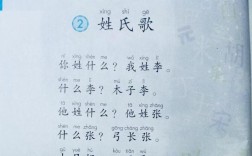 xìng shì gē
2 姓氏歌
nǐ xìng shén me wǒ xìng lǐ
你姓什么？我姓李。
shén me lǐ mù zǐ lǐ
什么李？木子李。
tā xìng shén me tā xìng zhāng
他姓什么？他姓张。
shén me zhāng gōng cháng zhāng
什么张？弓长张。